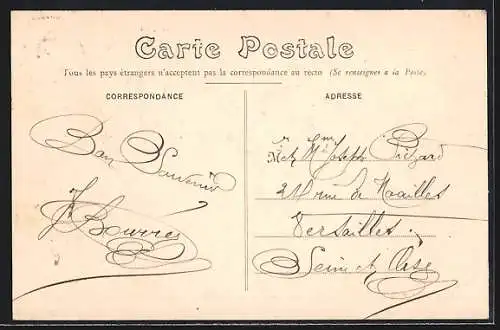 Carte Postale
Tous les pays étrangers n'acceptent pas la correspondance au recto (Se renseigner a la Poste)
CORRESPONDANCE
ADRESSE
Bon Souvenir
Mr et Mme Joseph
rue de Noailles
Versailles
Seine et Oise